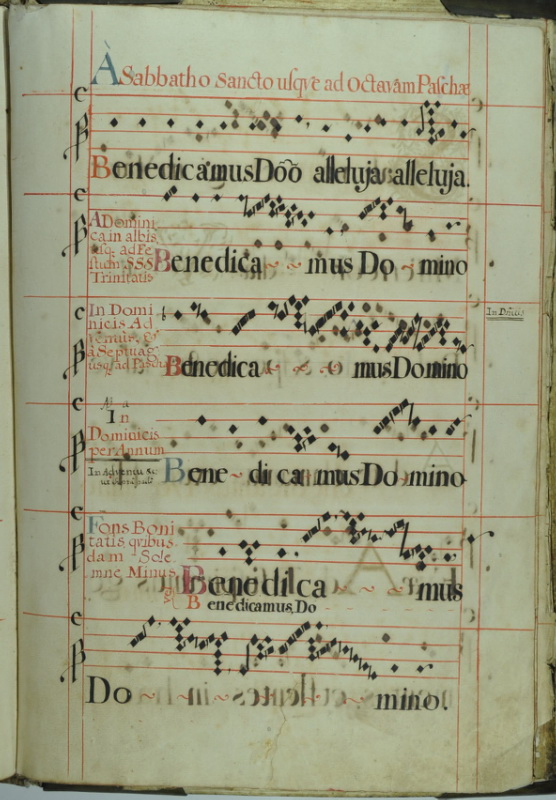 À Sabbatho Sancto usque ad Octavam Paschæ
Benedicamus Dño alleluja alleluja.
A Domini
ca in albis
usq. ad Fe
stum SSS
Trinitatis
Benedica ~ ~ mus Do ~ mino
In Domi
nicis Ad
à Septuag
usq; ad Pascha
Benedica ~ ~ ~ mus Domino
In
Dominicis
per Annum
Bene ~ di ca mus Do ~ mino
Fons Boni
tatis quibus
dam Sole
mne Minus
Benedi ca ~ ~ ~ mus
Benedicamus Do
Do ~ ~ ~ ~ ~ ~ mino.